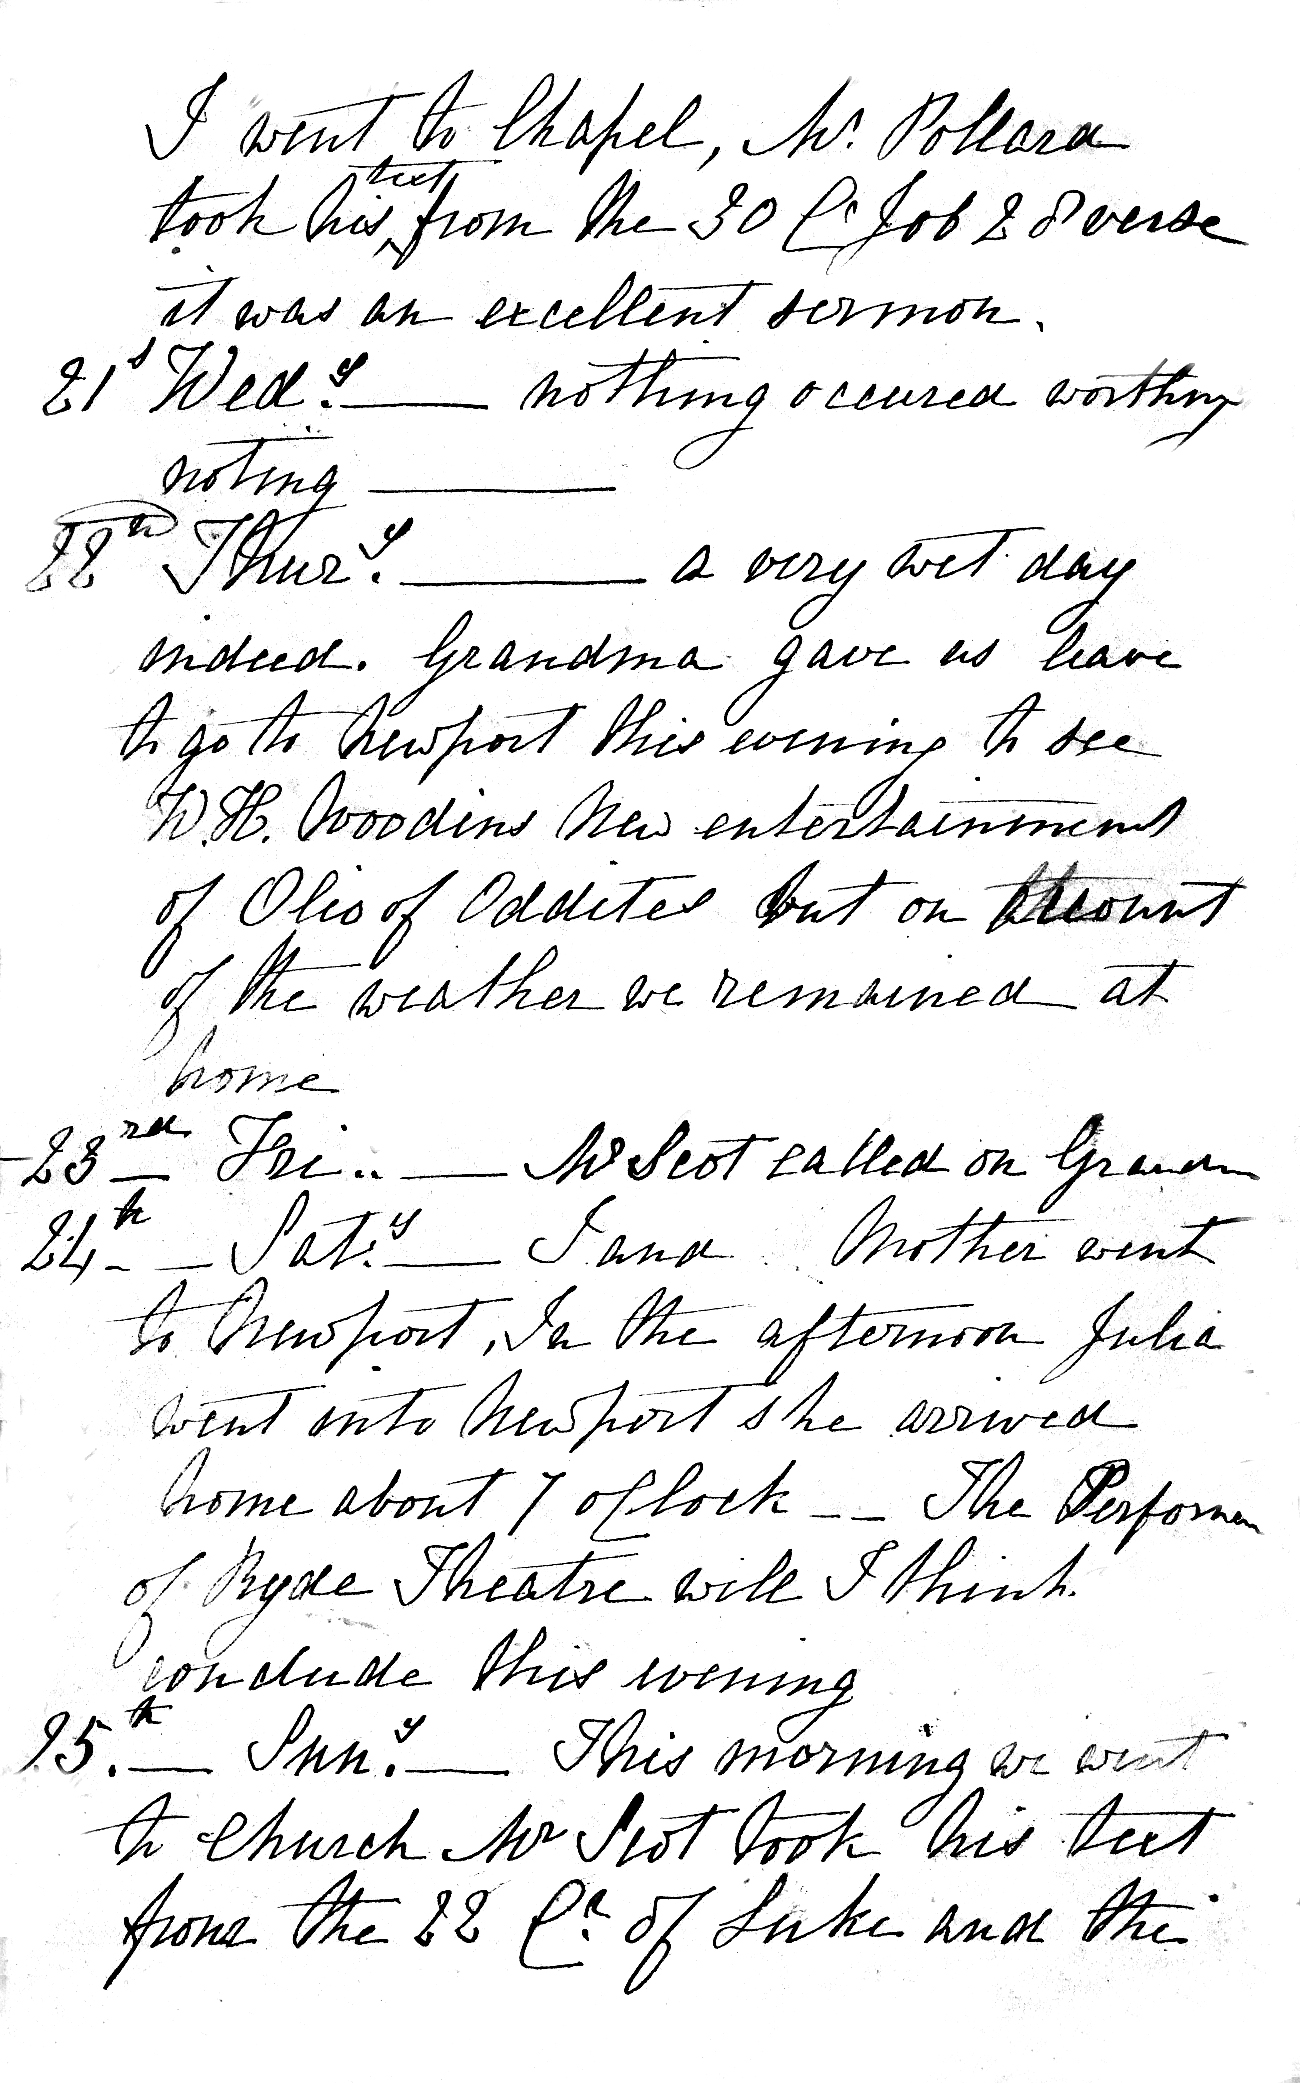 I went to Chapel, Mr. Pollard
took his text from the 30 Cr Job 28 verse
it was an excellent sermon.
21s Wed.y — nothing occured worthy
noting —
22th Thur.y — a very wet day
indeed. Grandma gave us leave
to go to Newport this evening to see
W.H. Woodins New entertainment
of Olio of Oddites but on account
of the weather we remained at
home
23rd — Fri.. — Mr Scot called on Grandm
24th — Sat.y — I and Mother went
to Newport, In the afternoon Julia
went into Newport she arrived
home about 7 oClock -- The Performan
of Ryde Theatre will I think.
conclude this evening
25.th — Sun.y — This morning we went
to Church Mr Scot took his text
from the 22 Cr. of Luke and the